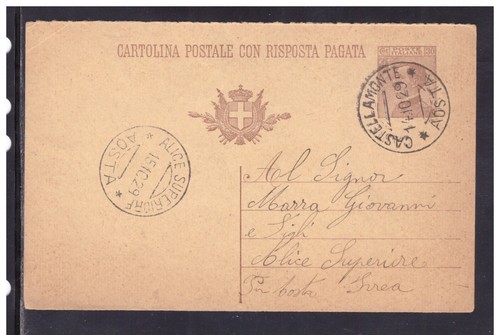 CARTOLINA POSTALE CON RISPOSTA PAGATA
POSTE ITALIANE
CASTELLAMONTE * AOSTA *
14.10.29
ALICE SUPERIORE * AOSTA *
15.10.29
Al Signor
Marra Giovanni
e Figli
Alice Superiore
Ivrea